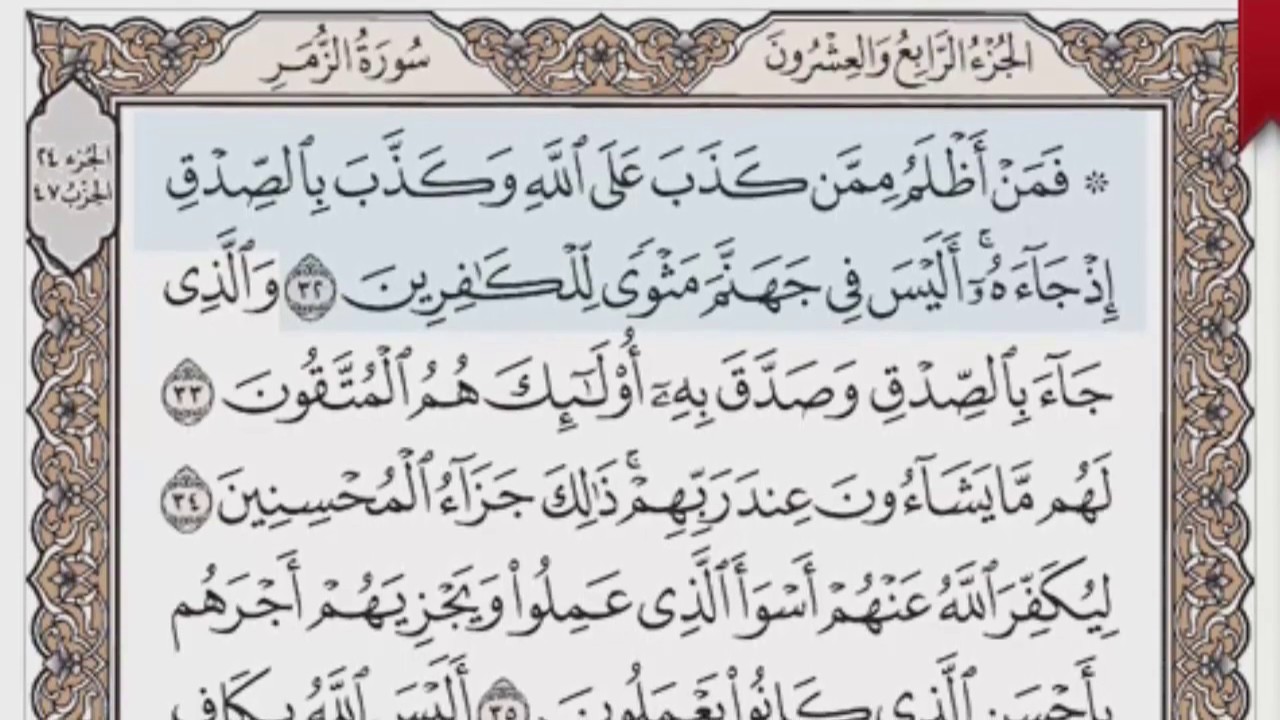 الجُزْءُ الرَّابِعُ وَالعِشْرُونَ
سُورَةُ الزُّمَرِ
الجزء ٢٤
الحزب ٤٧
۞ فَمَنۡ أَظۡلَمُ مِمَّن كَذَبَ عَلَى ٱللَّهِ وَكَذَّبَ بِٱلصِّدۡقِ
إِذۡ جَآءَهُۥٓۚ أَلَيۡسَ فِي جَهَنَّمَ مَثۡوٗى لِّلۡكَٰفِرِينَ ٣٢ وَٱلَّذِي
جَآءَ بِٱلصِّدۡقِ وَصَدَّقَ بِهِۦٓ أُوْلَٰٓئِكَ هُمُ ٱلۡمُتَّقُونَ ٣٣
لَهُم مَّا يَشَآءُونَ عِندَ رَبِّهِمۡۚ ذَٰلِكَ جَزَآءُ ٱلۡمُحۡسِنِينَ ٣٤
لِيُكَفِّرَ ٱللَّهُ عَنۡهُمۡ أَسۡوَأَ ٱلَّذِي عَمِلُواْ وَيَجۡزِيَهُمۡ أَجۡرَهُم
بِأَحۡسَنِ ٱلَّذِي كَانُواْ يَعۡمَلُونَ ٣٥ أَلَيۡسَ ٱللَّهُ بِكَافٍ